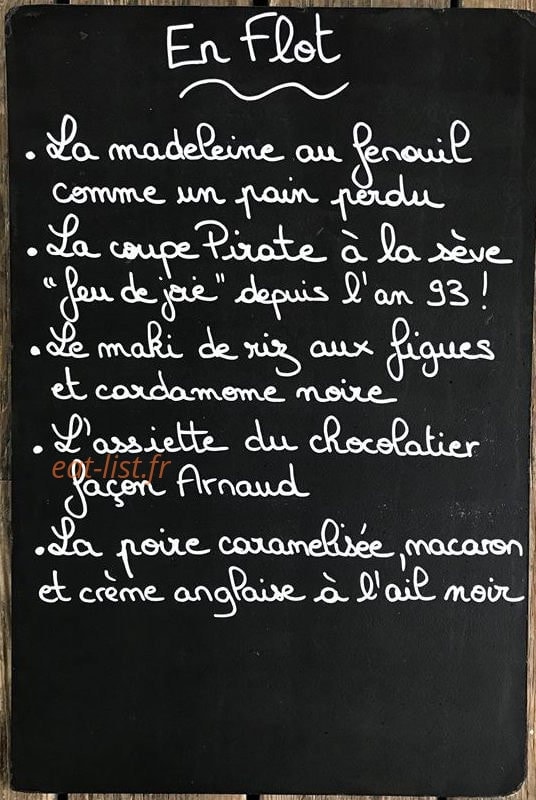 En Flot
. La madeleine au fenouil
comme un pain perdu
. La coupe Pirate à la sève
"feu de joie" depuis l'an 93 !
. Le maki de riz aux figues
et cardamome noire
. L'assiette du chocolatier
eat-list.fr
façon Arnaud
. La poire caramelisée, macaron
et crème anglaise à l'ail noir